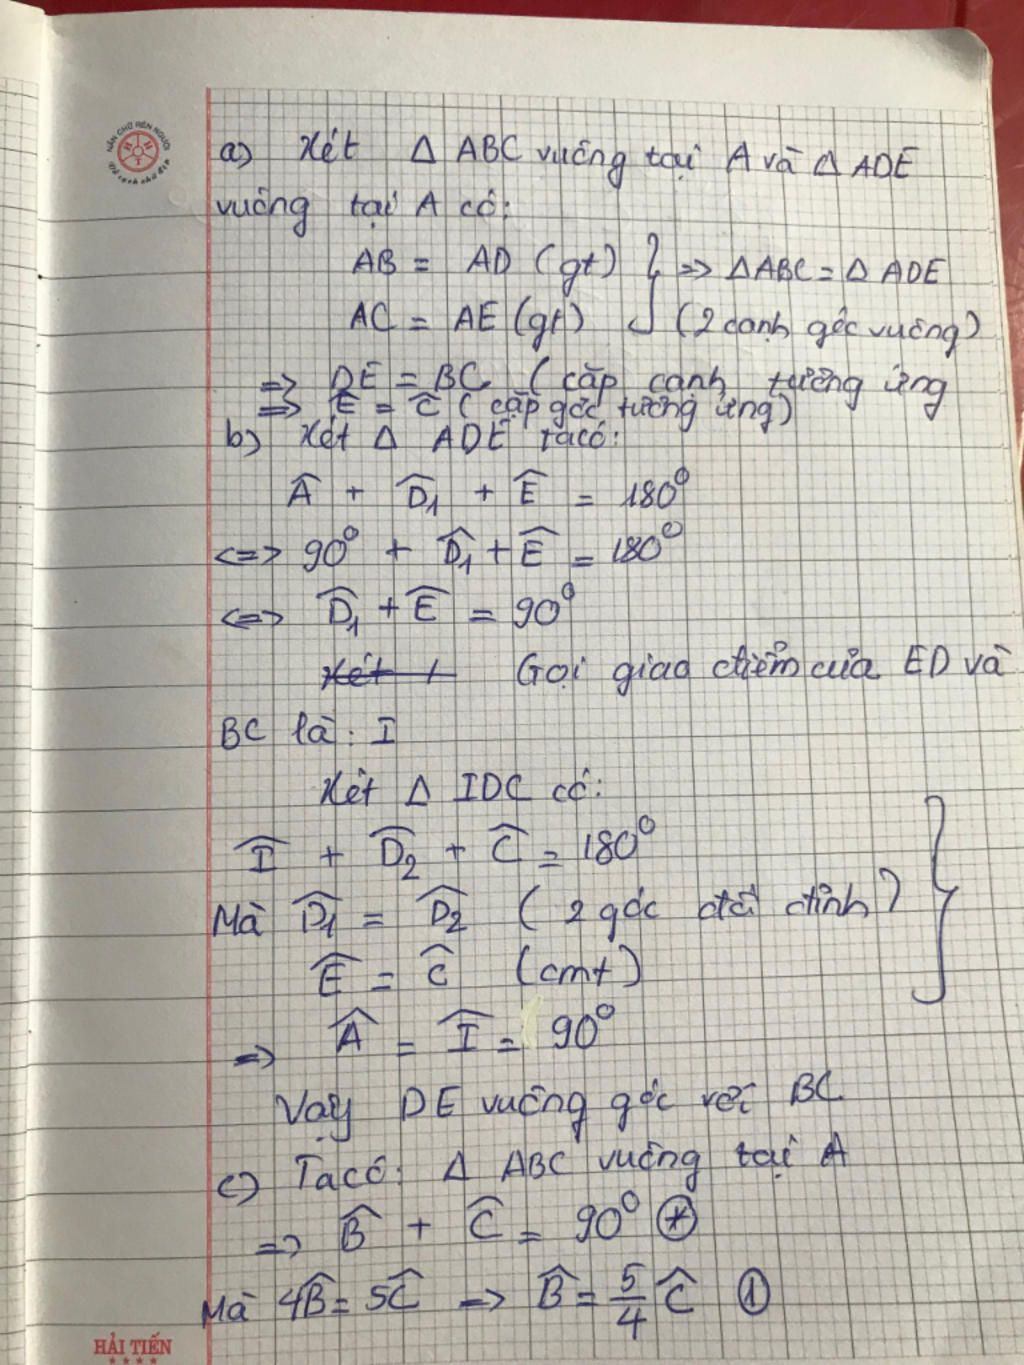 NÂN CHỮ RÈN NGƯỜI
a) Xét Δ ABC vuông tại A và Δ ADE
vuông tại A có:
AB = AD (gt) } => ΔABC = Δ ADE
AC = AE (gt) (2 cạnh góc vuông)
=> DE = BC (cặp cạnh tương ứng
=> Ê = Ĉ (cặp góc tương ứng)
b) Xét Δ ADE ta có:
Â + D̂₁ + Ê = 180⁰
<=> 90⁰ + D̂₁ + Ê = 180⁰
<=> D̂₁ + Ê = 90⁰
Xét Gọi giao điểm của ED và
BC là: I
Xét Δ IDC có:
Î + D̂₂ + Ĉ = 180⁰
Mà D̂₁ = D̂₂ (2 góc đối đỉnh)
Ê = Ĉ (cmt) }
=> Â = Î = 90⁰
Vậy DE vuông góc với BC
c) Ta có: Δ ABC vuông tại A
=> B̂ + Ĉ = 90⁰ (*)
Mà 4B̂ = 5Ĉ => B̂ = 5/4 Ĉ ①
HẢI TIẾN